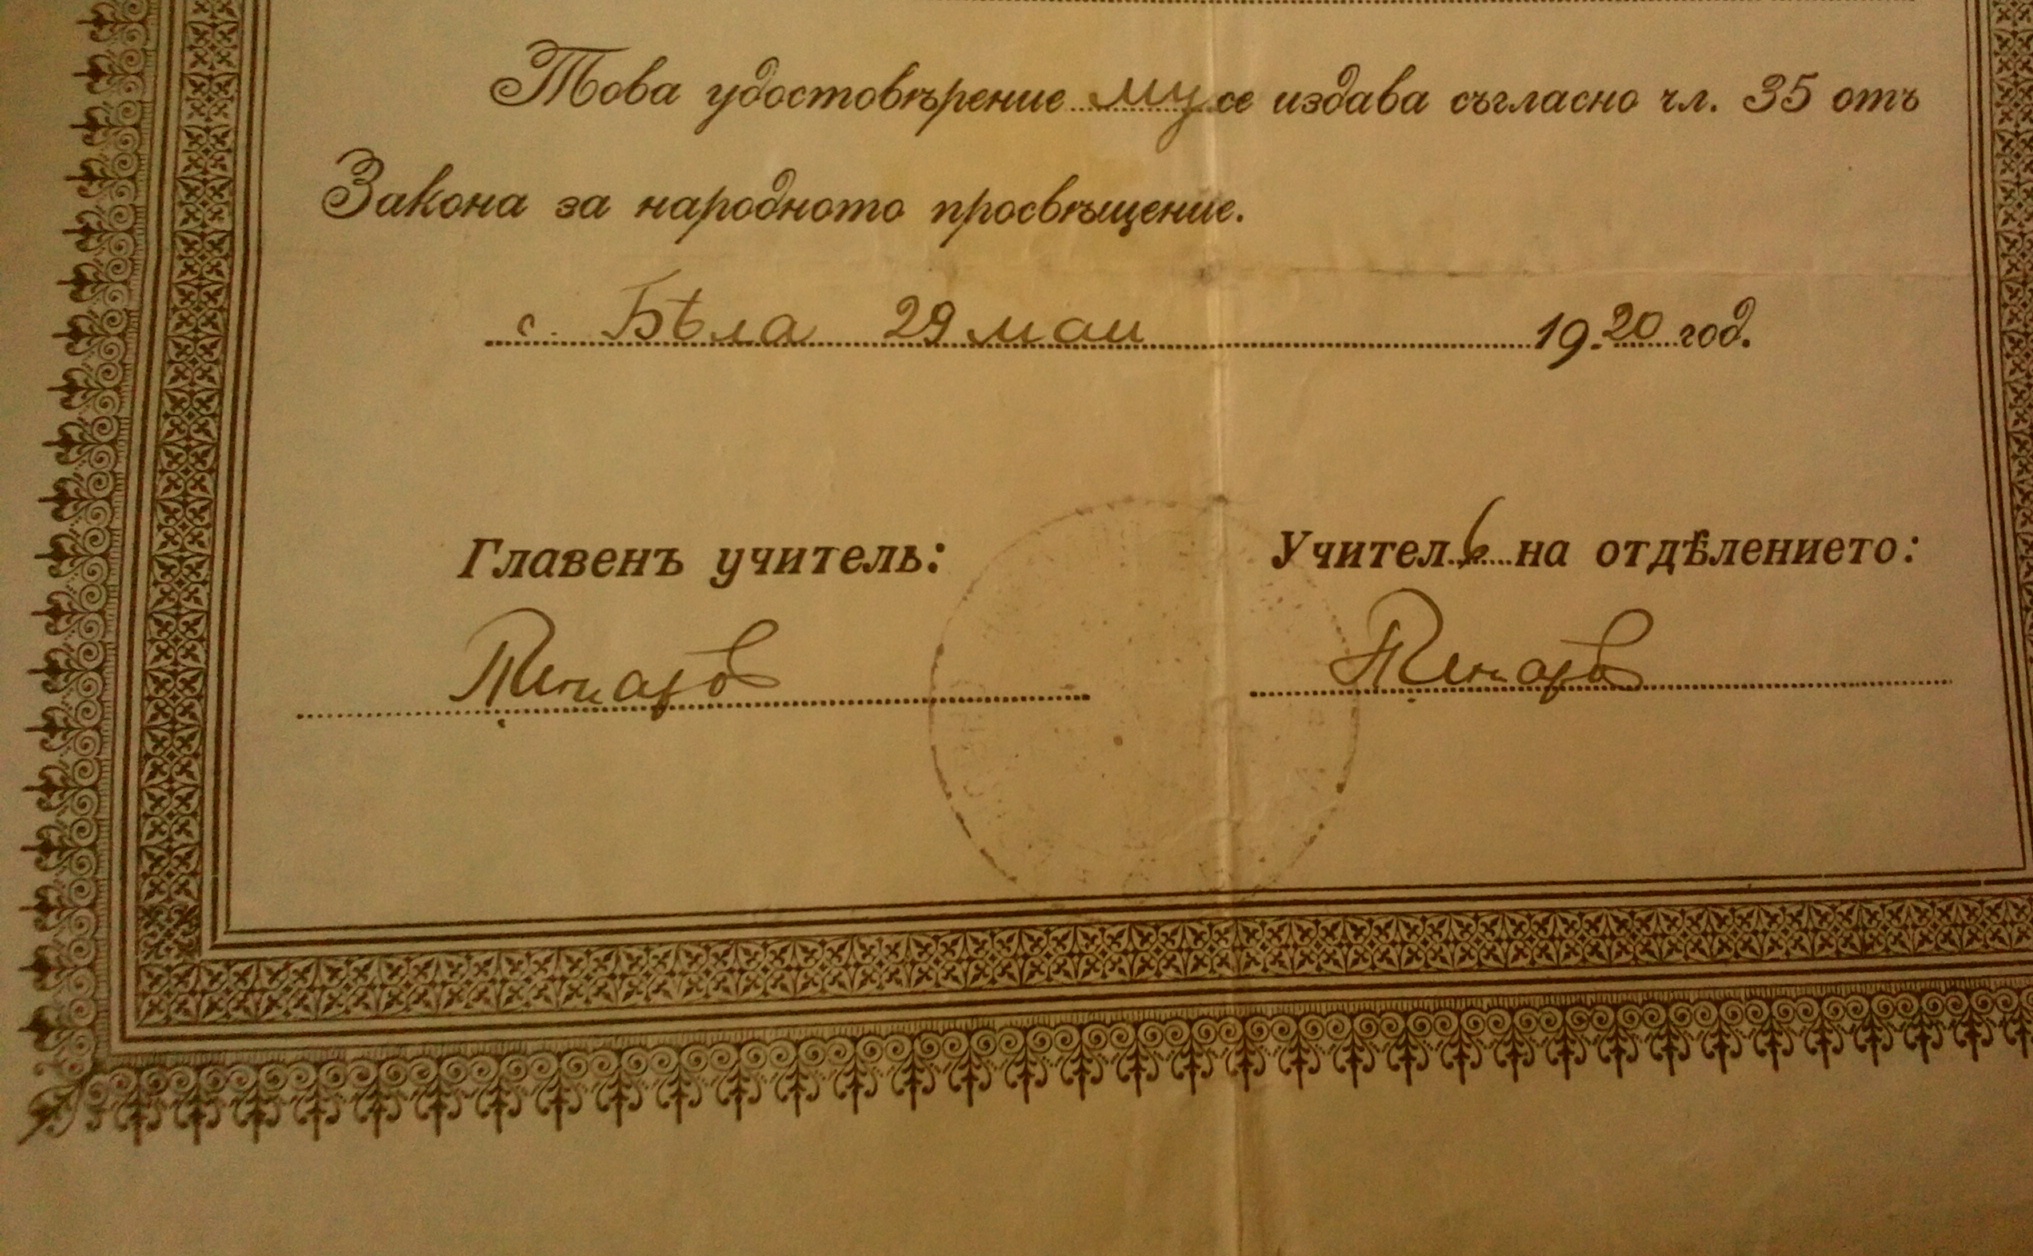 Това удостовѣрение му се издава съгласно чл. 35 отъ
Закона за народното просвѣщение.
с. Бѣла 29 маи 1920 год.
Главенъ учитель: Учителъ на отдѣлението: